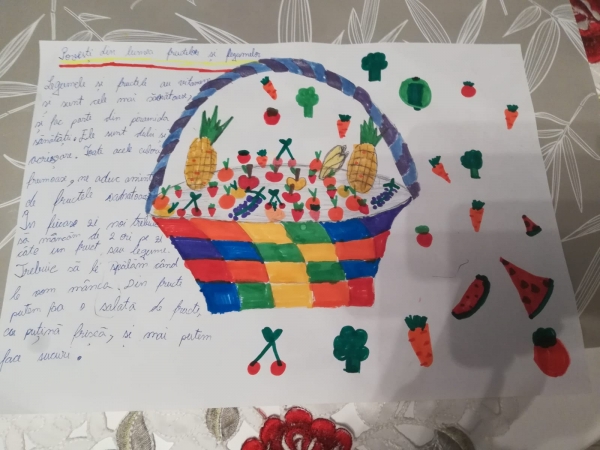 Povești din lumea fructelor și legumelor
Legumele și fructele au vitamine
și sunt cele mai sănătoase,
și fac parte din piramida
sănătății. Ele sunt dulci
acrișoare. Toate acele culori
frumoase, ne aduc aminte
de fructele sănătoase
În fiecare zi noi trebuie
să mâncăm de 2 ori pe zi
câte un fruct sau legume.
Trebuie să le spălăm când
le vom mânca. Din fructe
putem face o salată de fructe,
cu puțină frișcă, și mai putem
face sucuri.